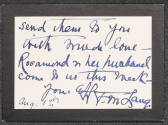 send them to you
with much love —
Rosamund & her husband
come to us this week
your
Aug. 1st